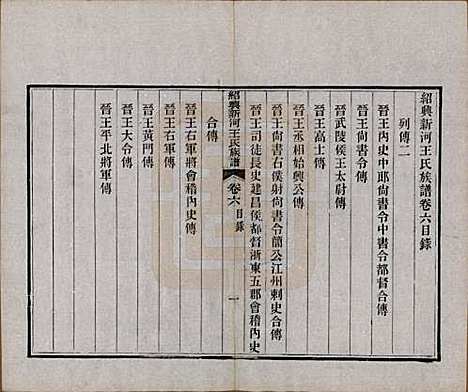 紹興新河王氏族譜卷六目錄
列傳二
晉王內史中郎尚書令中書令都督合傳
晉王尚書令傳
晉武陵侯王太尉傳
晉王高士傳
晉王丞相始興公傳
晉王尚書右僕射尚書令簡公江州刺史合傳
晉王司徒長史建昌侯都督浙東五郡會稽內史
紹興新河王氏族譜 卷六目錄 一
合傳
晉王右軍將會稽內史傳
晉王右軍傳
晉王黃門傳
晉王大令傳
晉王平北將軍傳